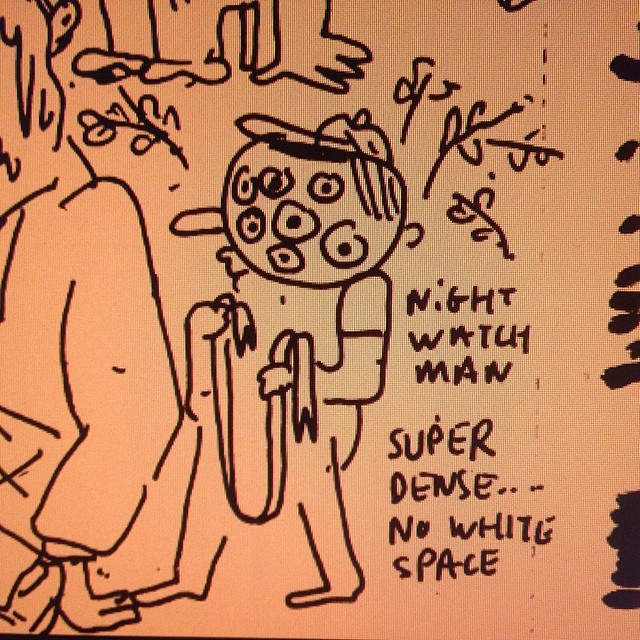 NIGHT
WATCH
MAN
SUPER
DENSE....
NO WHITE
SPACE